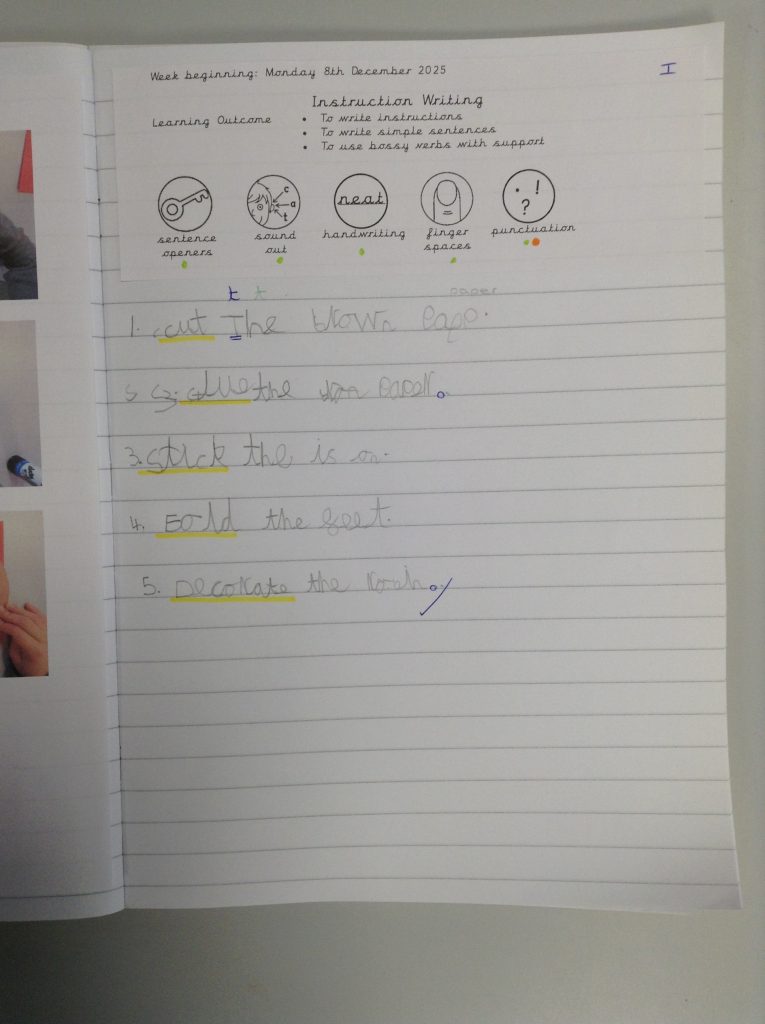 Week beginning: Monday 8th December 2025
I
Instruction Writing
Learning Outcome
• To write instructions
• To write simple sentences
• To use bossy verbs with support
c
a
t
neat
. ! ?
sentence openers
sound out
handwriting
finger spaces
punctuation
t t paper
1. cut The brown pape.
glue the paper.
3. Stick the is on.
4. Fold the feet.
5. Decorate the